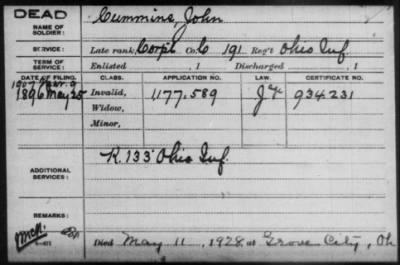 DEAD
NAME OF SOLDIER: Cummins, John
SERVICE: Late rank, Corpl Co. C 191 Reg't Ohio Inf.
TERM OF SERVICE: Enlisted , 1 Discharged , 1
DATE OF FILING. CLASS. APPLICATION NO. LAW. CERTIFICATE NO.
1896 May 25 Invalid, 1177.589 934231
Widow,
Minor,
K. 133" Ohio Inf.
ADDITIONAL SERVICES:
REMARKS:
Died May 11, 1928 at Grove City, Oh